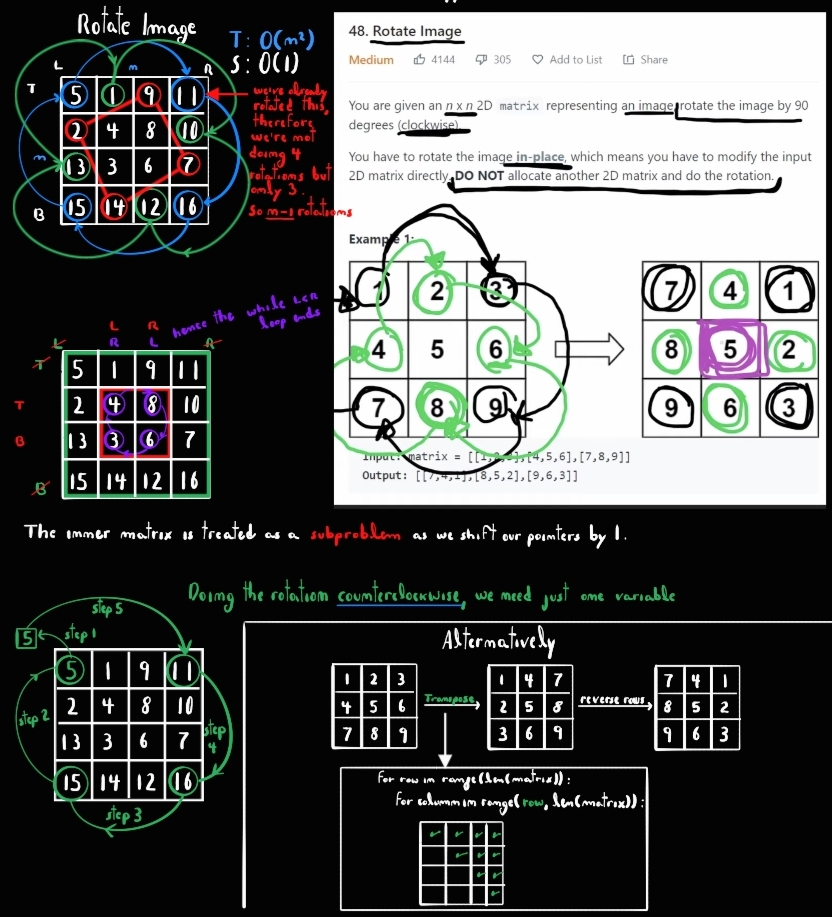 Rotate Image
T: O(n²)
S: O(1)
L n R
T 5 1 9 11
2 4 8 10
n 13 3 6 7
B 15 14 12 16
we've already
rotated this,
therefore
we're not
doing 4
rotations but
only 3.
So n-1 rotations
48. Rotate Image
Medium 4144 305 Add to List Share
You are given an n x n 2D matrix representing an image, rotate the image by 90
degrees (clockwise).
You have to rotate the image in-place, which means you have to modify the input
2D matrix directly. DO NOT allocate another 2D matrix and do the rotation.
Example 1:
1 2 3
4 5 6
7 8 9
7 4 1
8 5 2
9 6 3
Input: matrix = [[1,2,3],[4,5,6],[7,8,9]]
Output: [[7,4,1],[8,5,2],[9,6,3]]
hence the while L<R
loop ends
L R
L R L R
T 5 1 9 11
T 2 4 8 10
B 13 3 6 7
B 15 14 12 16
The inner matrix is treated as a subproblem as we shift our pointers by 1.
Doing the rotation counterclockwise, we need just one variable
step 5
5 step 1
5 1 9 11
step 2 2 4 8 10 step 4
13 3 6 7
15 14 12 16
step 3
Alternatively
1 2 3
4 5 6
7 8 9
Transpose
1 4 7
2 5 8
3 6 9
reverse rows
7 4 1
8 5 2
9 6 3
For row in range(len(matrix)):
For column in range(row, len(matrix)):